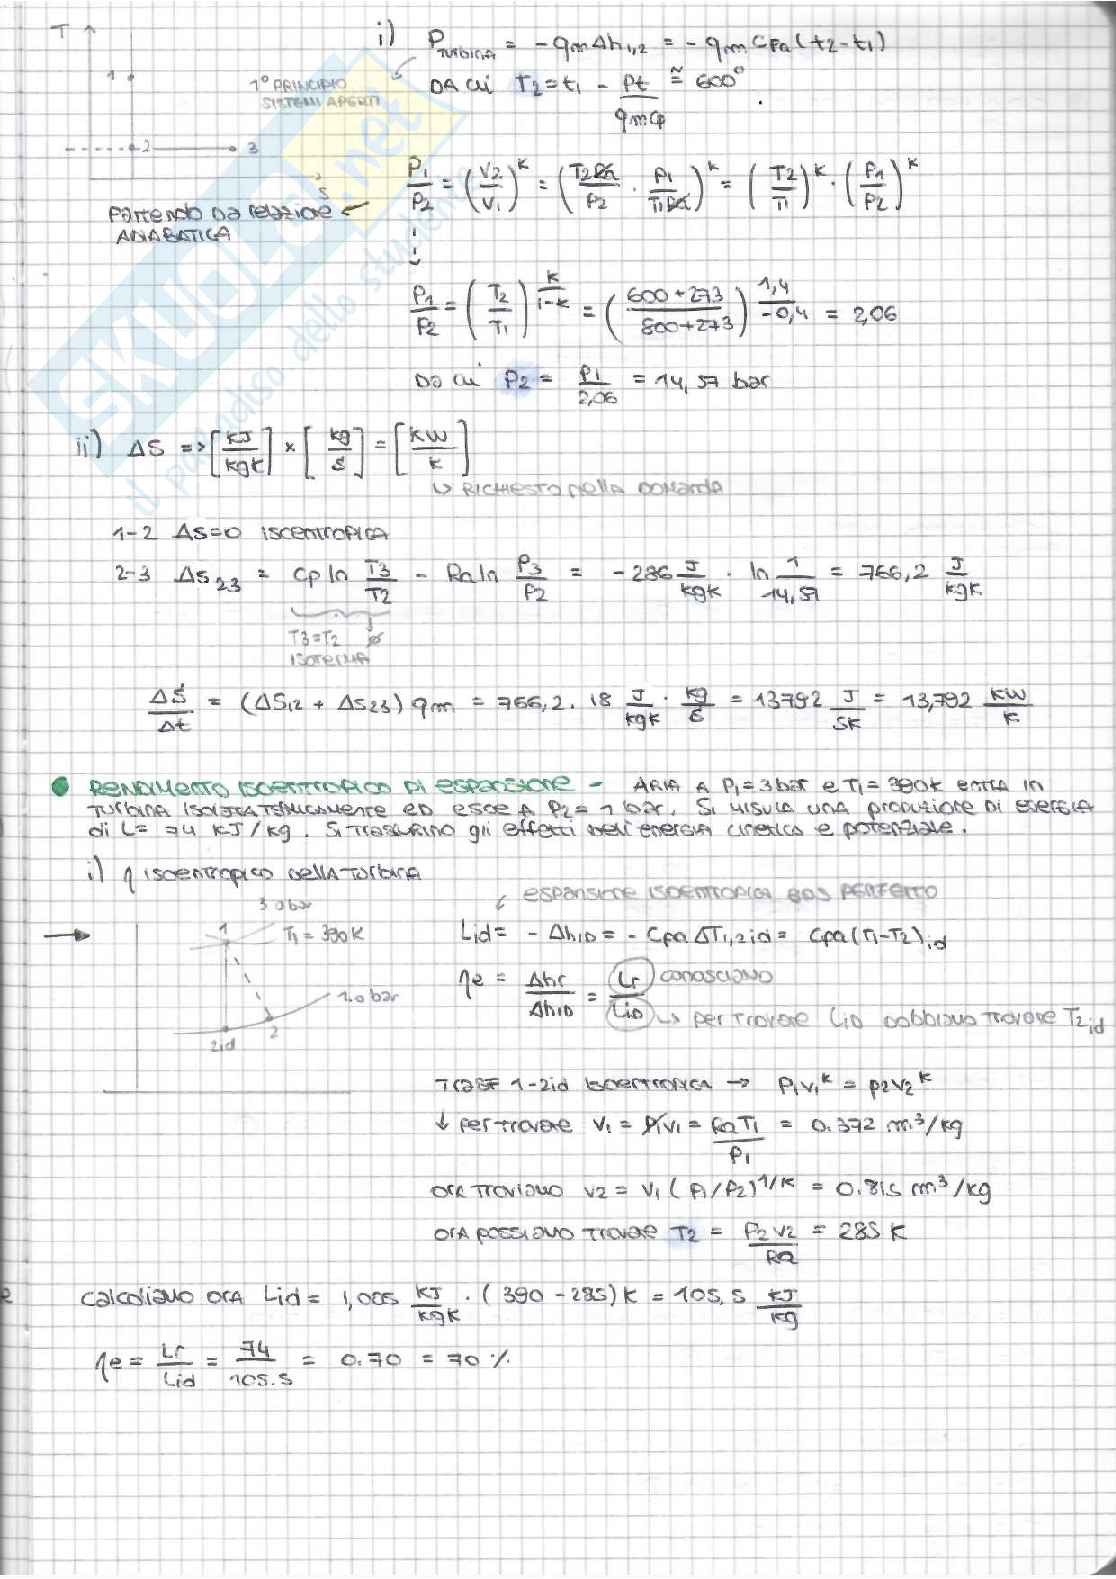 T
i) P TURBINA = - qm Δh1,2 = - qm cpa (t2 - t1)
1
1° PRINCIPIO
SISTEMI APERTI
DA CUI T2 = t1 - Pt / qm cp ≅ 600°
2 3
S
P1/P2 = (V2/V1)^K = (T2 Ra/P2 · P1/T1 Ra)^K = (T2/T1)^K · (P1/P2)^K
PARTENDO DA RELAZIONE
ADIABATICA
P1/P2 = (T2/T1)^K/1-K = (600+273/800+273)^1,4/-0,4 = 2,06
DA CUI P2 = P1/2,06 = 14,57 bar
ii) ΔS => [KJ/KgK] × [Kg/S] = [KW/K]
↳ RICHIESTO NELLA DOMANDA
1-2 ΔS=0 ISOENTROPICA
2-3 ΔS23 = Cp ln T3/T2 - Ra ln P3/P2 = - 286 J/KgK · ln 1/14,57 = 766,2 J/KgK
T3=T2 ø
ISOTERMA
ΔS/Δt = (ΔS12 + ΔS23) qm = 766,2 · 18 J/KgK · Kg/S = 13792 J/SK = 13,792 KW/K
RENDIMENTO ISOENTROPICO DI ESPANSIONE - ARIA A P1=3bar e T1= 390K entra in
TURBINA ed esce A P2= 1 bar. Si misura una produzione di energia
di L= 74 KJ/Kg. Si trascurino gli effetti dell'energia cinetica e potenziale.
i) η isoentropico della turbina
espansione isoentropica gas perfetto
3.0 bar
1 T1 = 390K
Lid = - ΔhID = - Cpa ΔT1,2id = Cpa (T1-T2)id
ηe = Δhr/ΔhID = Lr/LiD conosciamo
↳ per trovare LiD dobbiamo trovare T2id
1.0 bar
2id 2
TRASF 1-2id ISOENTROPICA → P1V1^K = P2V2^K
↓ per trovare V1 = P1V1 = RaT1/P1 = 0.372 m³/Kg
ora troviamo V2 = V1 (P1/P2)^1/K = 0.815 m³/Kg
ora possiamo trovare T2 = P2V2/Ra = 285 K
calcoliamo ora Lid = 1,005 KJ/KgK · (390 - 285)K = 105,5 KJ/Kg
ηe = Lr/Lid = 74/105.5 = 0.70 = 70 %
SKUOLA.net
il paradiso dello studente